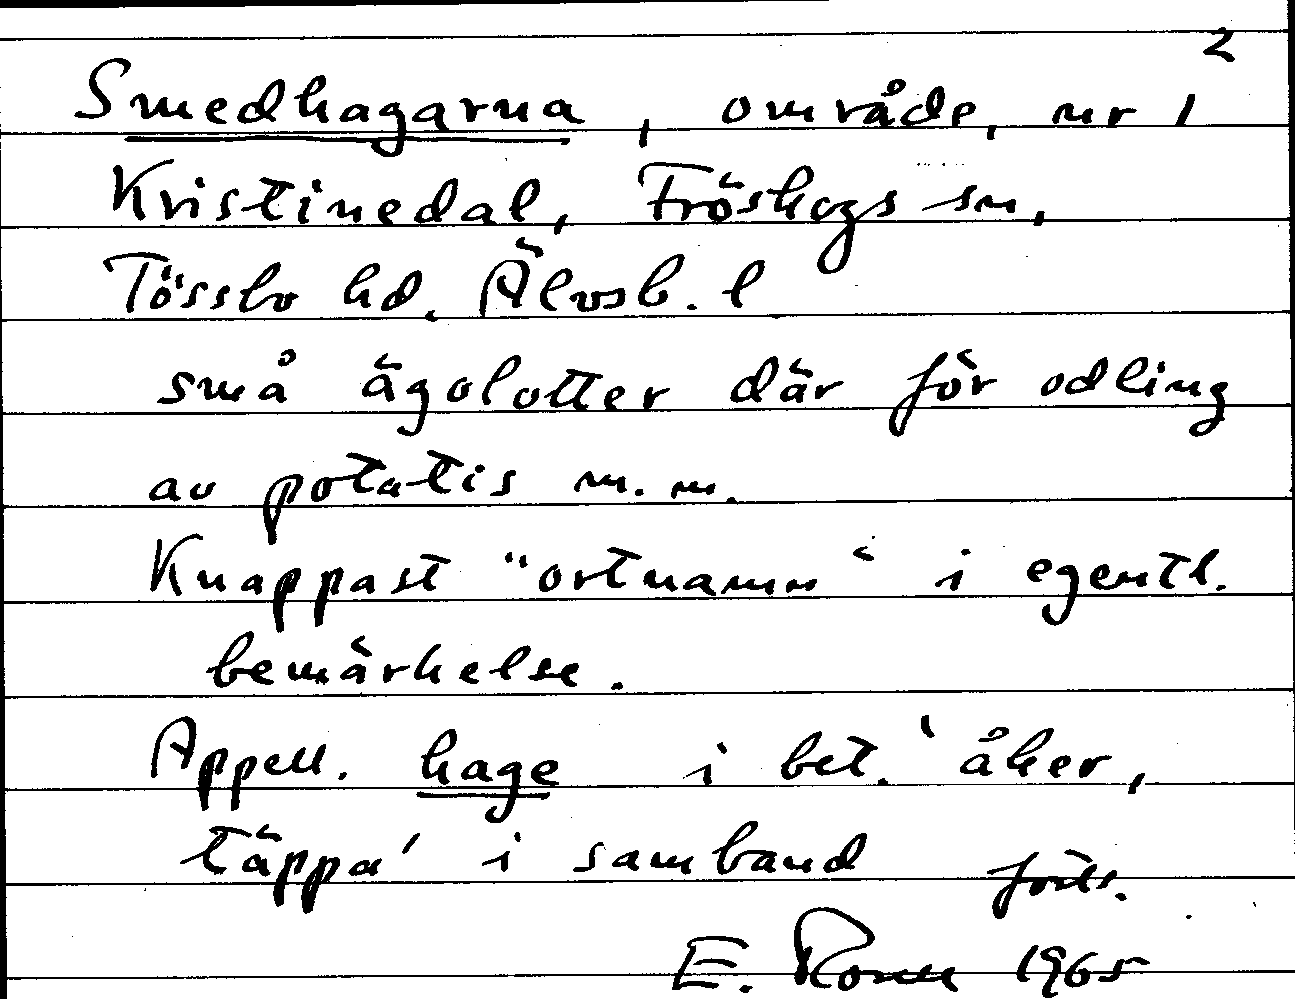 2
Smedhagarna, område, nr 1
Kristinedal, Fröskogs sn,
Tössbo hd. Älvsb. l
små ägolotter där för odling
av potatis m.m.
Knappast "ortnamn" i egentl.
bemärkelse.
Appell. hage i bet. 'åker,
täppa' i samband forts.
E. 1965